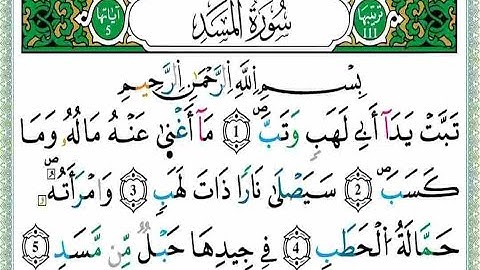 آياتها 5 سُورَةُ الْمَسَدِ ترتيبها 111
بِسْمِ اللَّهِ الرَّحْمَٰنِ الرَّحِيمِ
تَبَّتْ يَدَآ أَبِي لَهَبٍ وَتَبَّ 1 مَآ أَغْنَىٰ عَنْهُ مَالُهُۥ وَمَا
كَسَبَ 2 سَيَصْلَىٰ نَارًا ذَاتَ لَهَبٍ 3 وَٱمْرَأَتُهُۥ
حَمَّالَةَ ٱلْحَطَبِ 4 فِي جِيدِهَا حَبْلٌ مِّن مَّسَدٍ 5